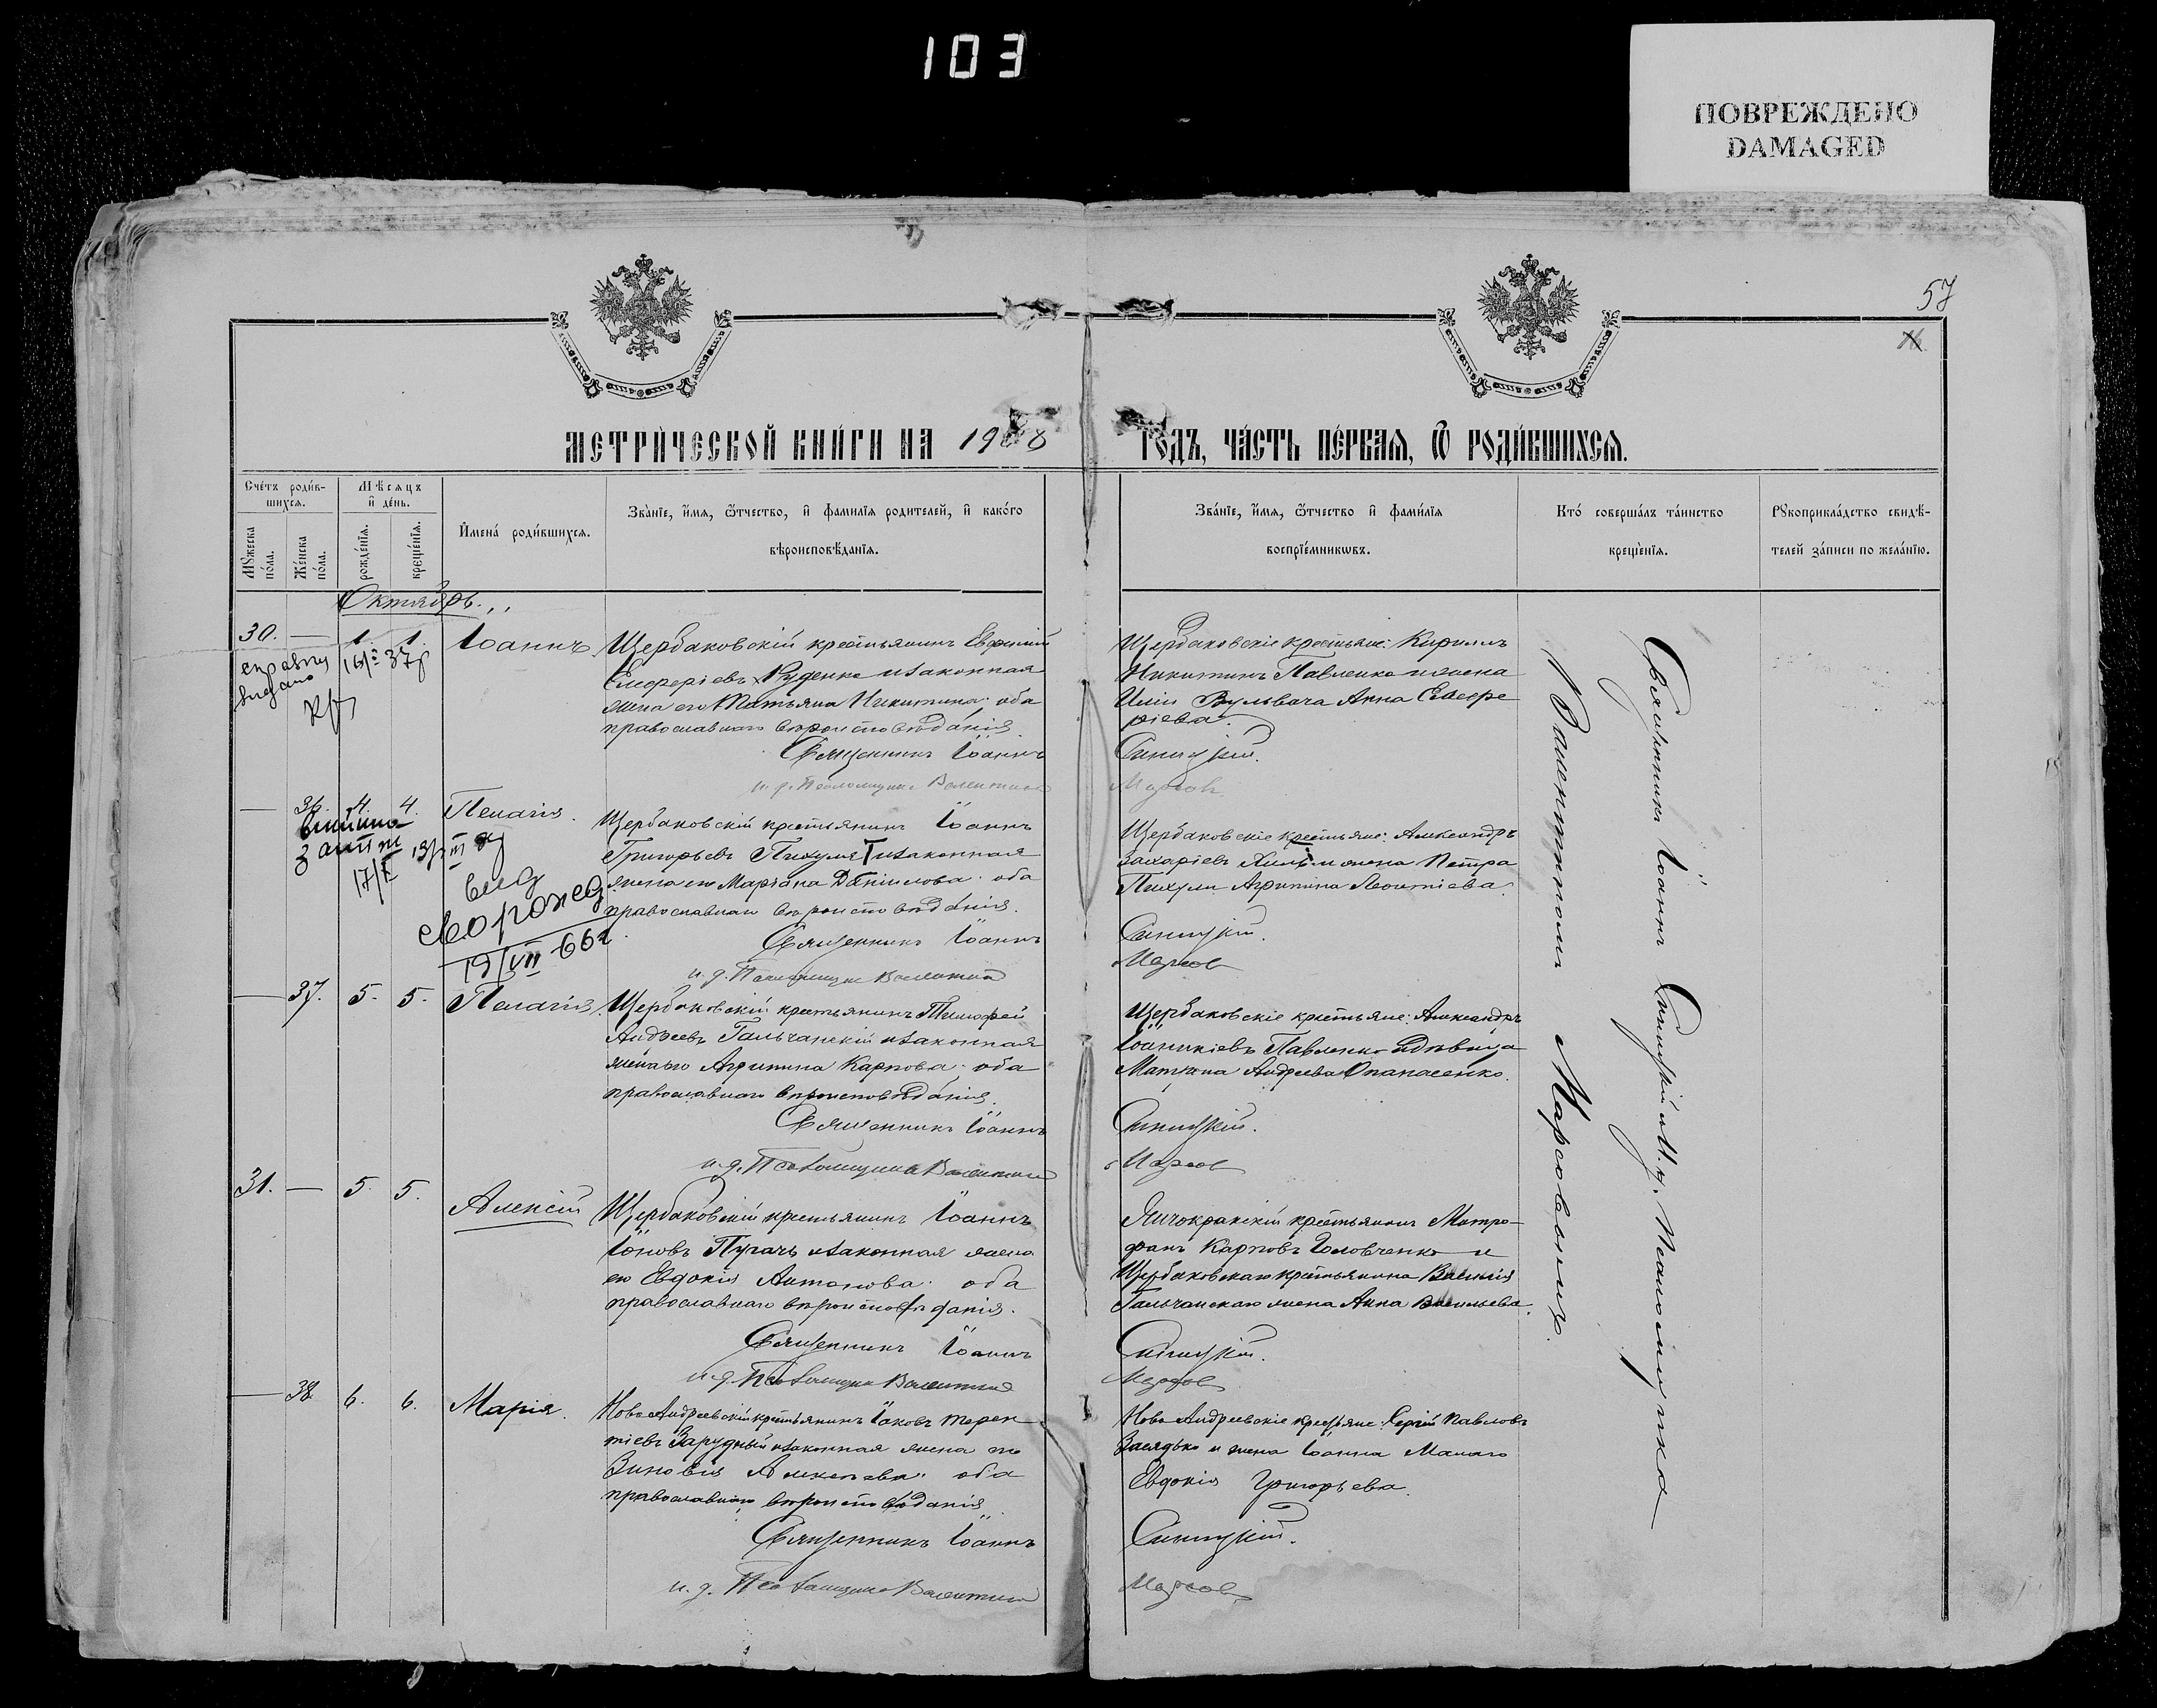 103
ПОВРЕЖДЕНО
DAMAGED
57
МЕТРИ́ЧЕСКОЙ КНИ́ГИ НА 1908
ГОДЪ, ЧА́СТЬ ПЕ́РВАѦ, Ѿ РОДИ́ВШИХСѦ.
Счётъ роди́в-
шихсѧ.
Мꙋ́жеска по́ла.
Же́нска по́ла.
Мѣ́сѧцъ
и҆ де́нь.
рожде́нїѧ.
креще́нїѧ.
И҆мена̀ роди́вшихсѧ.
Зва́нїе, и҆́мѧ, ѻ҆́тчество, и҆ фами́лїѧ роди́телей, и҆ како́го
вѣроисповѣ́данїѧ.
Зва́нїе, и҆́мѧ, ѻ҆́тчество и҆ фами́лїѧ
воспрїе́мникѡвъ.
Кто̀ соверша́лъ та́инство
креще́нїѧ.
Рꙋкоприкла́дство свидѣ́-
телей за́писи по жела́нїю.
Октябрь.
30. — 1. 1. Іоаннъ.
Щербаковскій крестьянинъ Евфимій
Елеферіевъ Руденко и законная
жена его Татьяна Никитина; оба
православнаго вѣроисповѣданія.
Священникъ Іоаннъ
и. д. Псаломщика Валентинъ
Щербаковскіе крестьяне: Кириллъ
Никитинъ Павленко и жена
Анна Елефе
ріева.
Синицкій.
Марсов
— 36. 4. 4. Пелагія.
17/X
19/VII-66г.
Щербаковскій крестьянинъ Іоаннъ
Григорьевъ Пихуля и законная
жена его Маріана Даніилова; оба
православнаго вѣроисповѣданія.
Священникъ Іоаннъ
и. д. Псаломщика Валентин
Щербаковскіе крестьяне: Александръ
Захаріевъ и жена Петра
Пихули Агрипина Леонтіева.
Синицкій.
Марсов
— 37. 5. 5. Пелагія.
Щербаковскій крестьянинъ Тимофей
Андреевъ Гальчанскій и законная
жена его Агрипина Карпова; оба
православнаго вѣроисповѣданія.
Священникъ Іоаннъ
и. д. Псаломщика Валентин
Щербаковскіе крестьяне: Александръ
Іоаникіевъ Павленко и дѣвица
Матрона Андреева Опанасенко.
Синицкій.
Марсов
31. — 5. 5. Алексій
Щербаковскій крестьянинъ Іоаннъ
Іоновъ Пугачъ и законная жена
его Евдокія Антонова; оба
православнаго вѣроисповѣданія.
Священникъ Іоаннъ
и. д. Псаломщика Валентин
Янчокракскій крестьянинъ Митро-
фанъ Карповъ Головченко и
Щербаковскаго крестьянина Василія
Гальчанскаго жена Анна Васильева.
Синицкій.
Марсов
— 38. 6. 6. Марія.
Ново Андреевскій крестьянинъ Іаковъ Терен
тіевъ Зарудный и законная жена его
Зиновія Алексѣева; оба
православнаго вѣроисповѣданія.
Священникъ Іоаннъ
и. д. Псаломщика Валентин
Ново Андреевскіе крестьяне: Сергій Павловъ
Засядько и жена Іоанна Малаго
Евдокія Григорьева.
Синицкій.
Марсов
Священникъ Іоаннъ Синицкій и И. д. Псаломщика
Валентиномъ Марсовымъ.